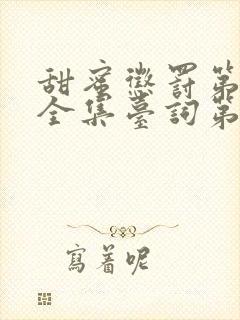 甜蜜懲罰第
全集臺詞第
寫着呢